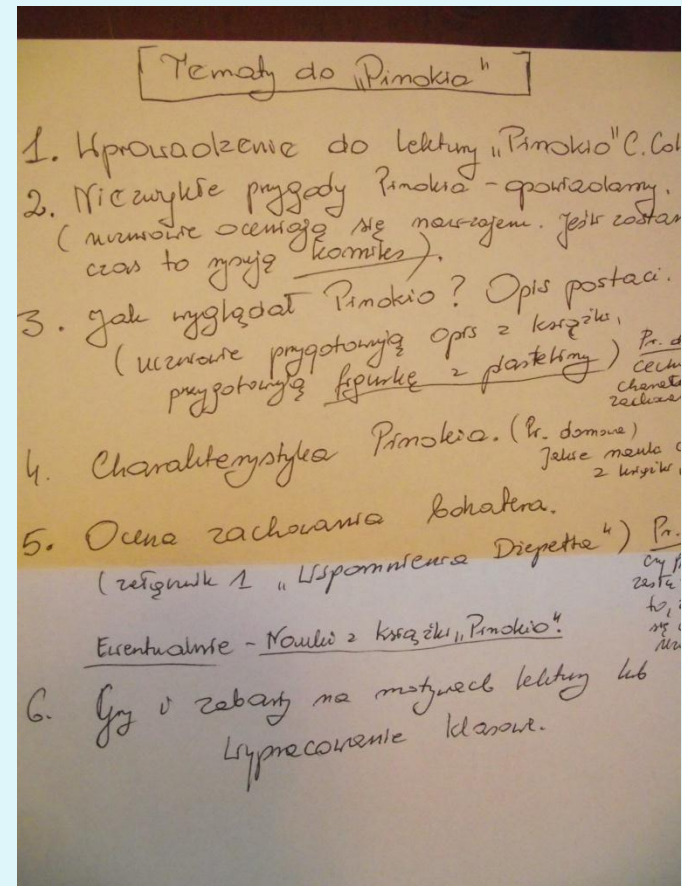 Tematy do „Pinokia"
1. Wprowadzenie do lektury „Pinokio" C. Col
2. Niezwykłe przygody Pinokia - opowiadamy.
( uczniowie oceniają się nawzajem. Jeśli zostan
czas to rysują komiks).
3. Jak wyglądał Pinokio? Opis postaci.
( uczniowie przygotowują opis z książki,
przygotowują figurkę z plasteliny) Pr. d
cechy
charakte
zachowa
4. Charakterystyka Pinokia. (Pr. domowa)
Jakie nauki
z książki
5. Ocena zachowania bohatera.
( załącznik 1 „Wspomnienia Dżepetta") Pr.
czy
to,
się
Ewentualnie - Nauki z książki „Pinokio".
6. Gry i zabawy na motywach lektury lub
wypracowanie klasowe.